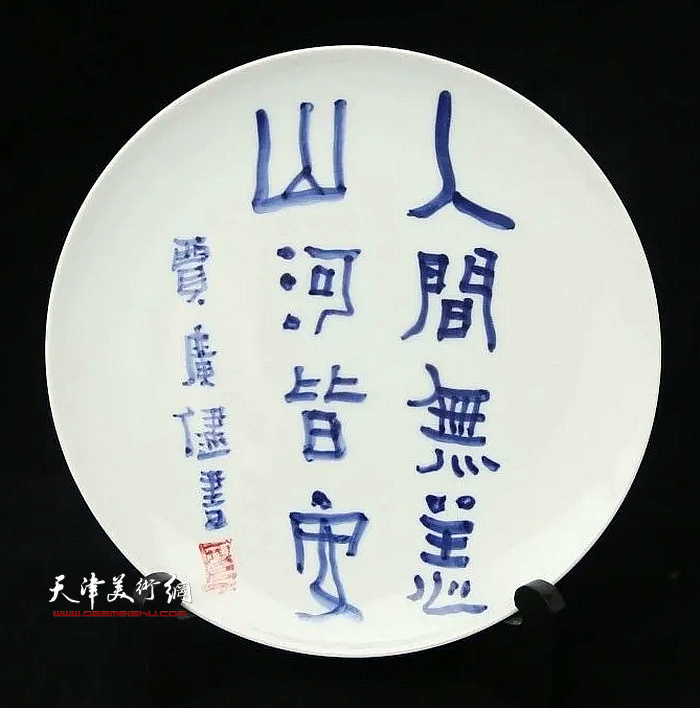 人間無恙
山河皆安
賈廣健書
天津美術網
www.022meishu.com